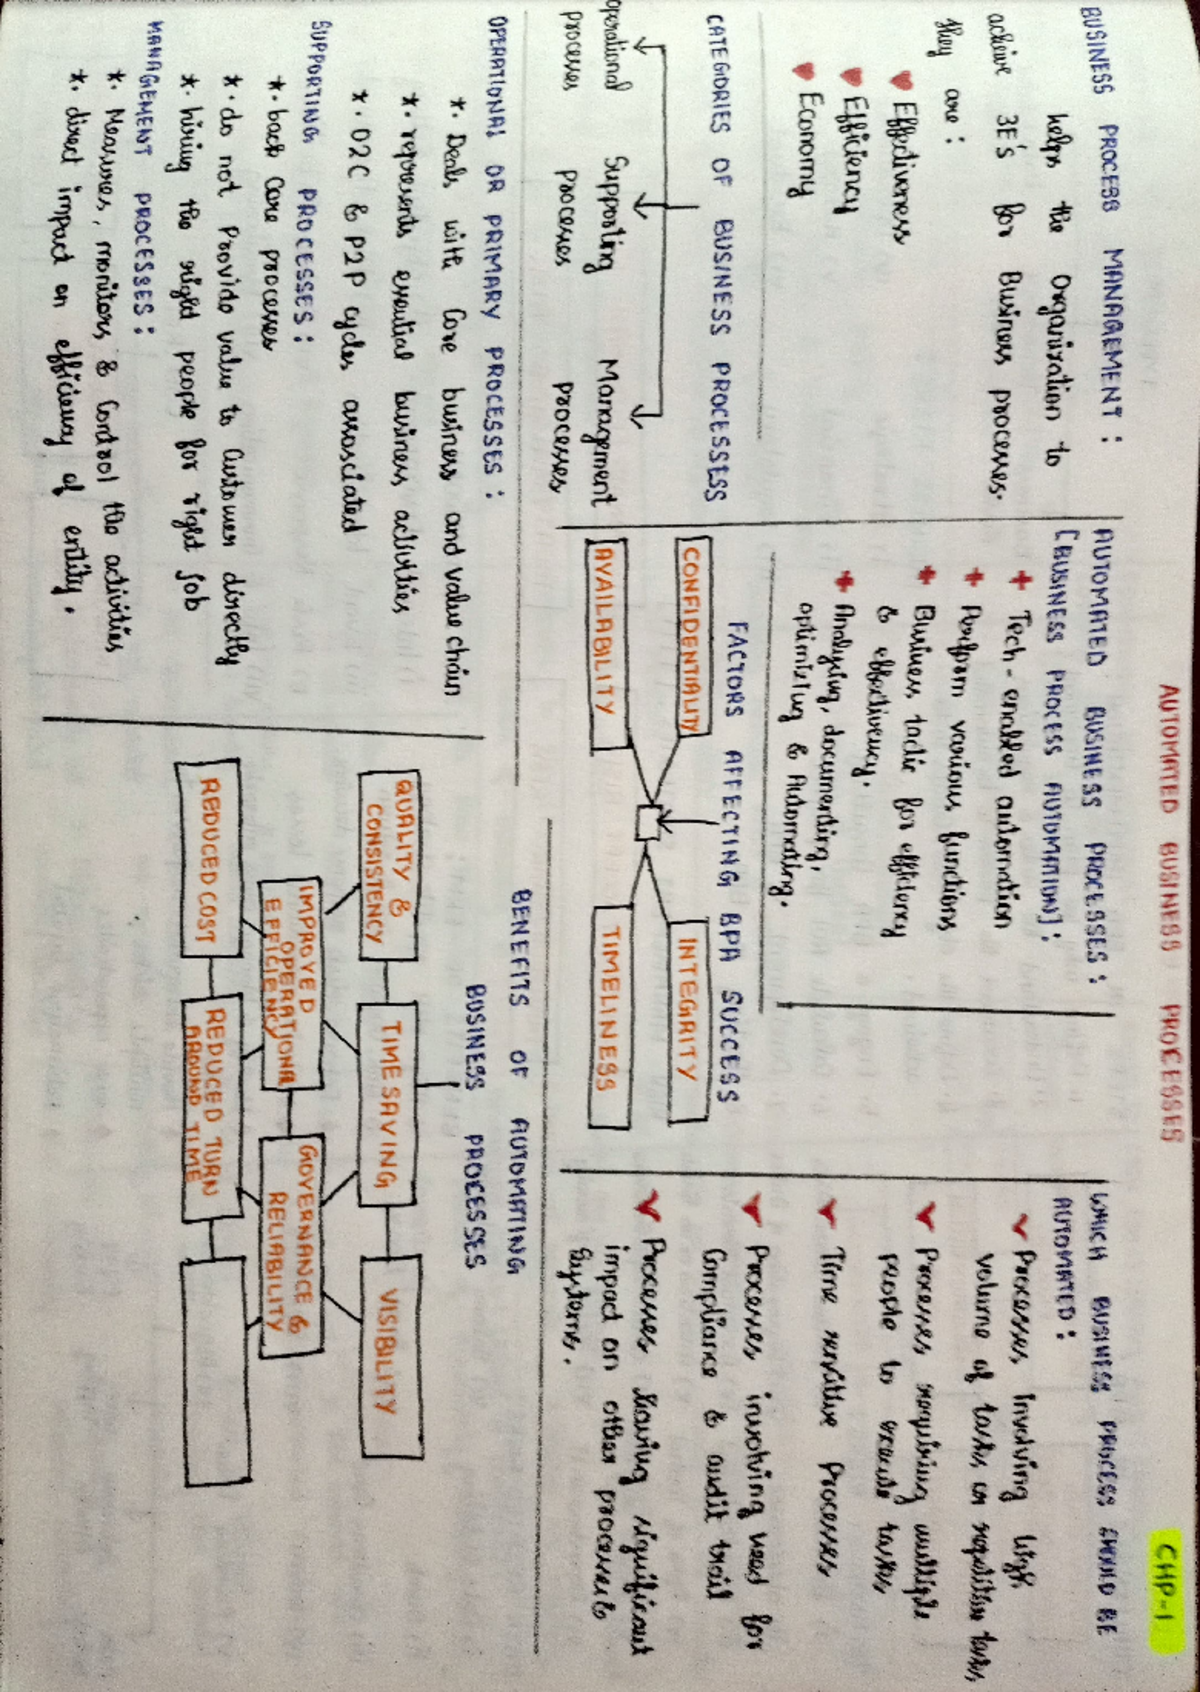 CHP-1
AUTOMATED BUSINESS PROCESSES
BUSINESS PROCESS MANAGEMENT :
helps the Organization to
acheive 3E's for Business processes.
they are :
Effectiveness
Efficiency
Economy
CATEGORIES OF BUSINESS PROCESSESS
operational Supporting Management
processes processes processes
OPERATIONAL OR PRIMARY PROCESSES :
*. Deals with Core business and value chain
*. represents essential business activities
*. O2C & P2P cycles associated
SUPPORTING PROCESSES :
*. back core processes
*. do not Provide value to Customer directly
*. hiring the right people for right job
MANAGEMENT PROCESSES :
*. Measures, monitors & Control the activities
*. direct impact on efficiency of entity.
AUTOMATED BUSINESS PROCESSES :
[BUSINESS PROCESS AUTOMATION] :
+ Tech-enabled automation
+ Perform various functions
+ Business tactic for efficiency
& effectivency.
+ Analysing, documenting,
optimistug & Automating.
FACTORS AFFECTING BPA SUCCESS
CONFIDENTIALITY
INTEGRITY
AVAILABILITY
TIMELINESS
WHICH BUSINESS PROCESS SHOULD BE
AUTOMATED :
Processes, Involving high
volume of tasks or repetitive tasks,
Processes, requiring multiple
people to execute tasks,
Time sensitive Processes
Processes, involving need for
Compliance & audit trail
Processes, having significant
impact on other processes &
Systems.
BENEFITS OF AUTOMATING
BUSINESS PROCESSES
QUALITY &
CONSISTENCY
TIME SAVING
VISIBILITY
IMPROVED
OPERATIONAL
EFFICIENCY
GOVERNANCE &
RELIABILITY
REDUCED COST
REDUCED TURN
AROUND TIME